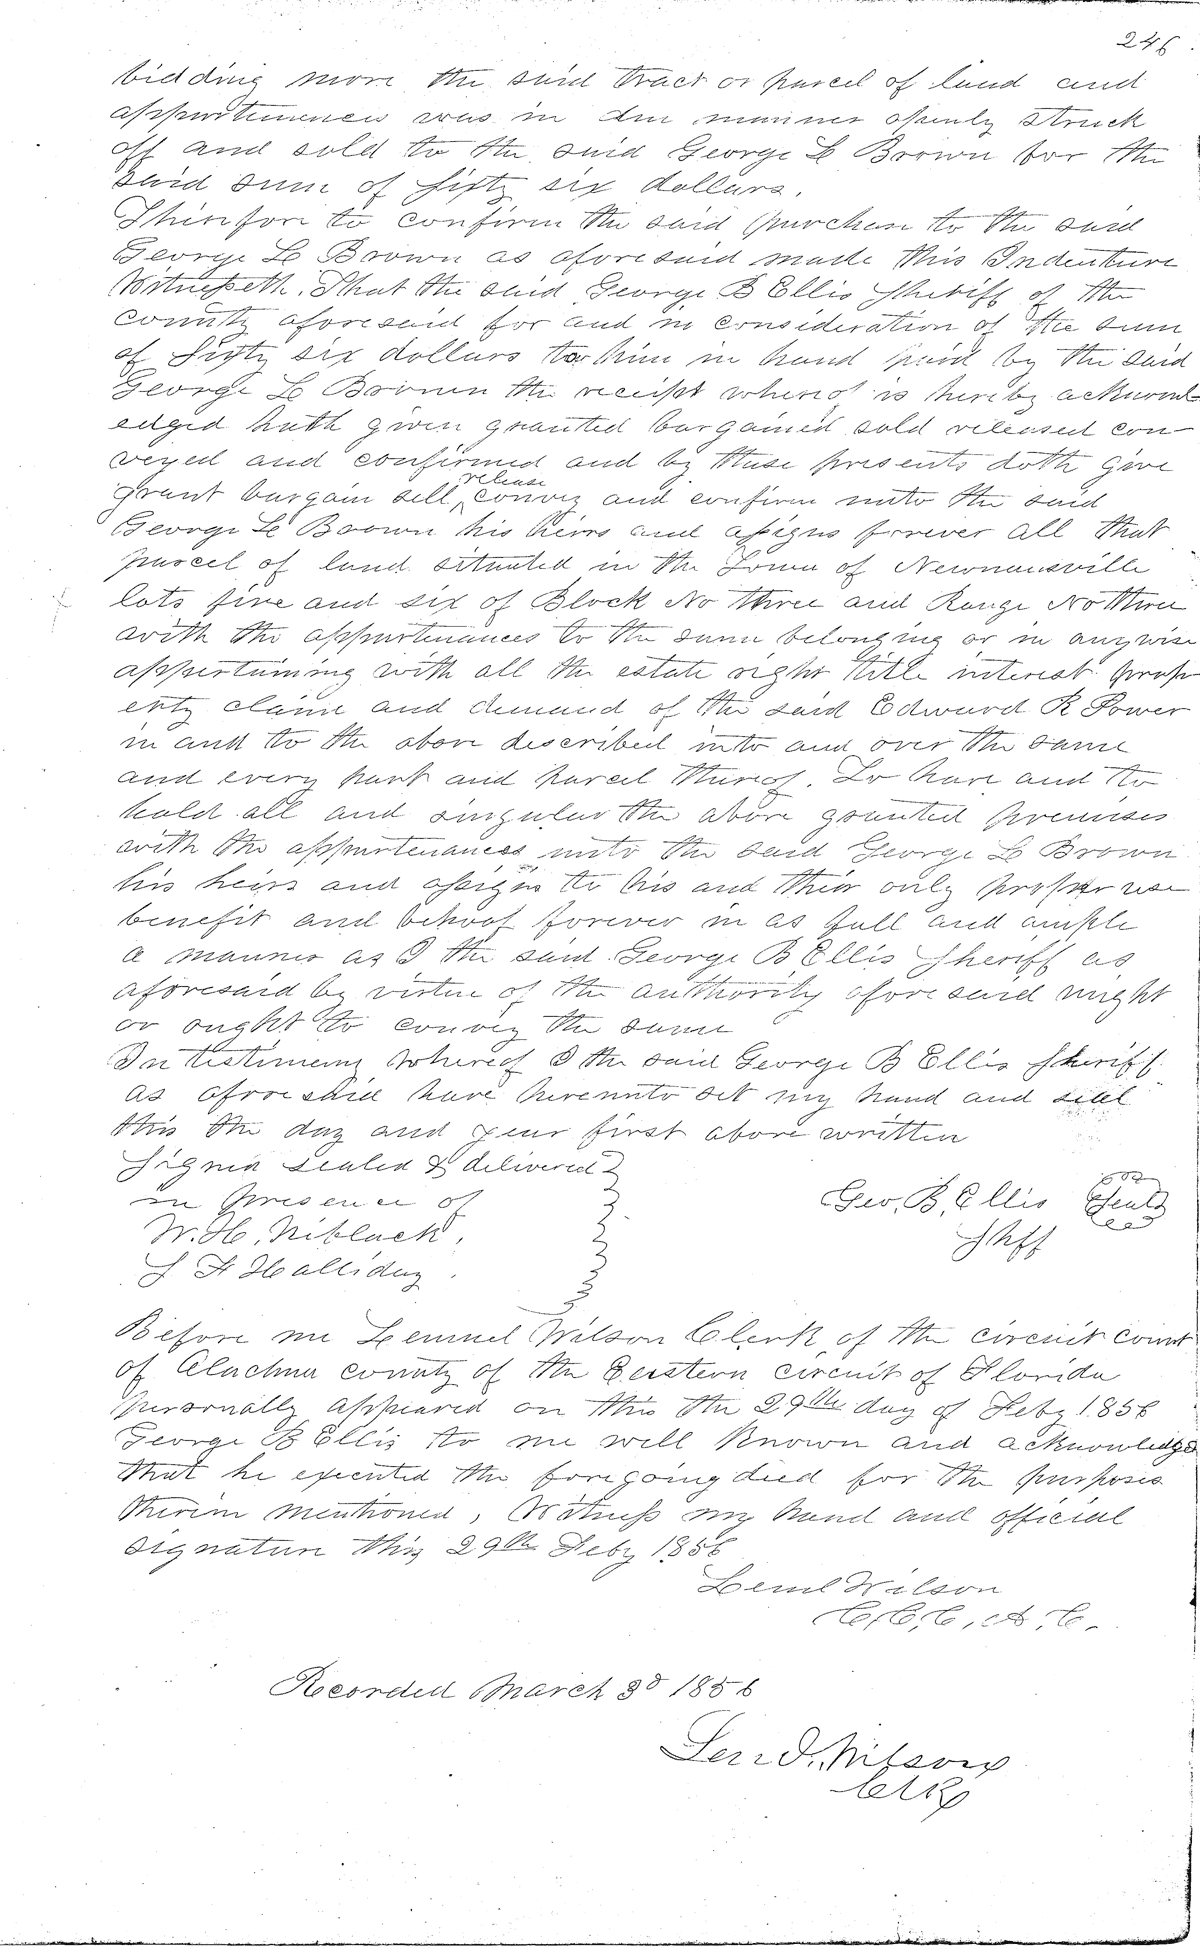 246
bidding more the said tract or parcel of land and
appurtenances was in due manner openly struck
off and sold to the said George L Brown for the
said sum of fifty six dollars.
Therefore to confirm the said purchase to the said
George L Brown as aforesaid made this Indenture
Witnesseth. That the said George B Ellis Sheriff of the
county aforesaid for and in consideration of the sum
of fifty six dollars to him in hand paid by the said
George L Brown the receipt whereof is hereby acknowl-
edged hath given granted bargained sold released con-
veyed and confirmed and by these presents doth give
release
grant bargain sell, convey and confirm unto the said
George L Brown his heirs and assigns forever all that
parcel of land situated in the Town of Newnansville
lots five and six of Block No three and Range No three
with the appurtenances to the same belonging or in anywise
appertaining with all the estate right title interest prop-
erty claim and demand of the said Edward R Power
in and to the above described into and over the same
and every part and parcel thereof. To have and to
hold all and singular the above granted premises
with the appurtenances unto the said George L Brown
his heirs and assigns to his and their only proper use
benefit and behoof forever in as full and ample
a manner as I the said George B Ellis Sheriff as
aforesaid by virtue of the authority aforesaid might
or ought to convey the same
In testimony whereof I the said George B Ellis Sheriff
as aforesaid have hereunto set my hand and seal
this the day and year first above written
Signed sealed & delivered
in presence of
W. H. Niblack.
S F Halliday.
Geo. B. Ellis Seal
Shff
Before me Lemuel Wilson Clerk of the circuit court
of Alachua county of the Eastern circuit of Florida
personally appeared on this the 29th day of Feby 1856
George B Ellis to me well known and acknowledge
that he executed the foregoing deed for the purposes
therein mentioned, Witness my hand and official
signature this 29th Feby 1856
Leml Wilson
C. C. C. A. C.
Recorded March 3d 1856
Wilson
Clk